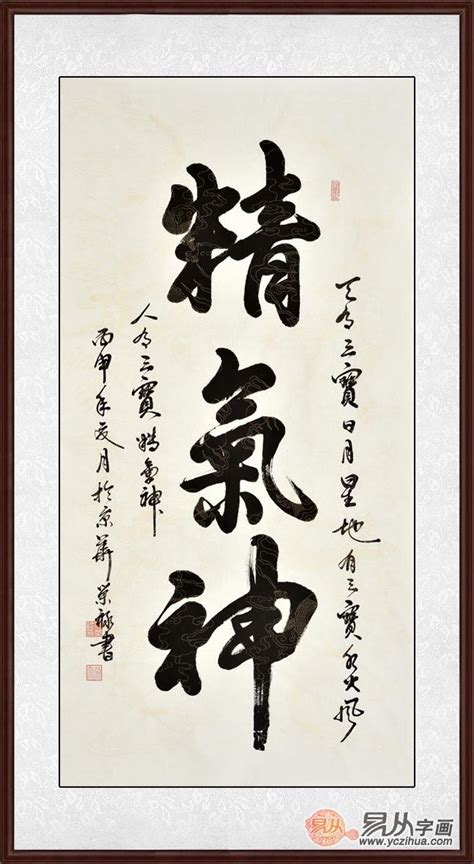 天有三寶日月星地有三寶水火風
精氣神
人有三寶精氣神
丙申年夏月於京華榮書
易从
易从字画
www.yczihua.com